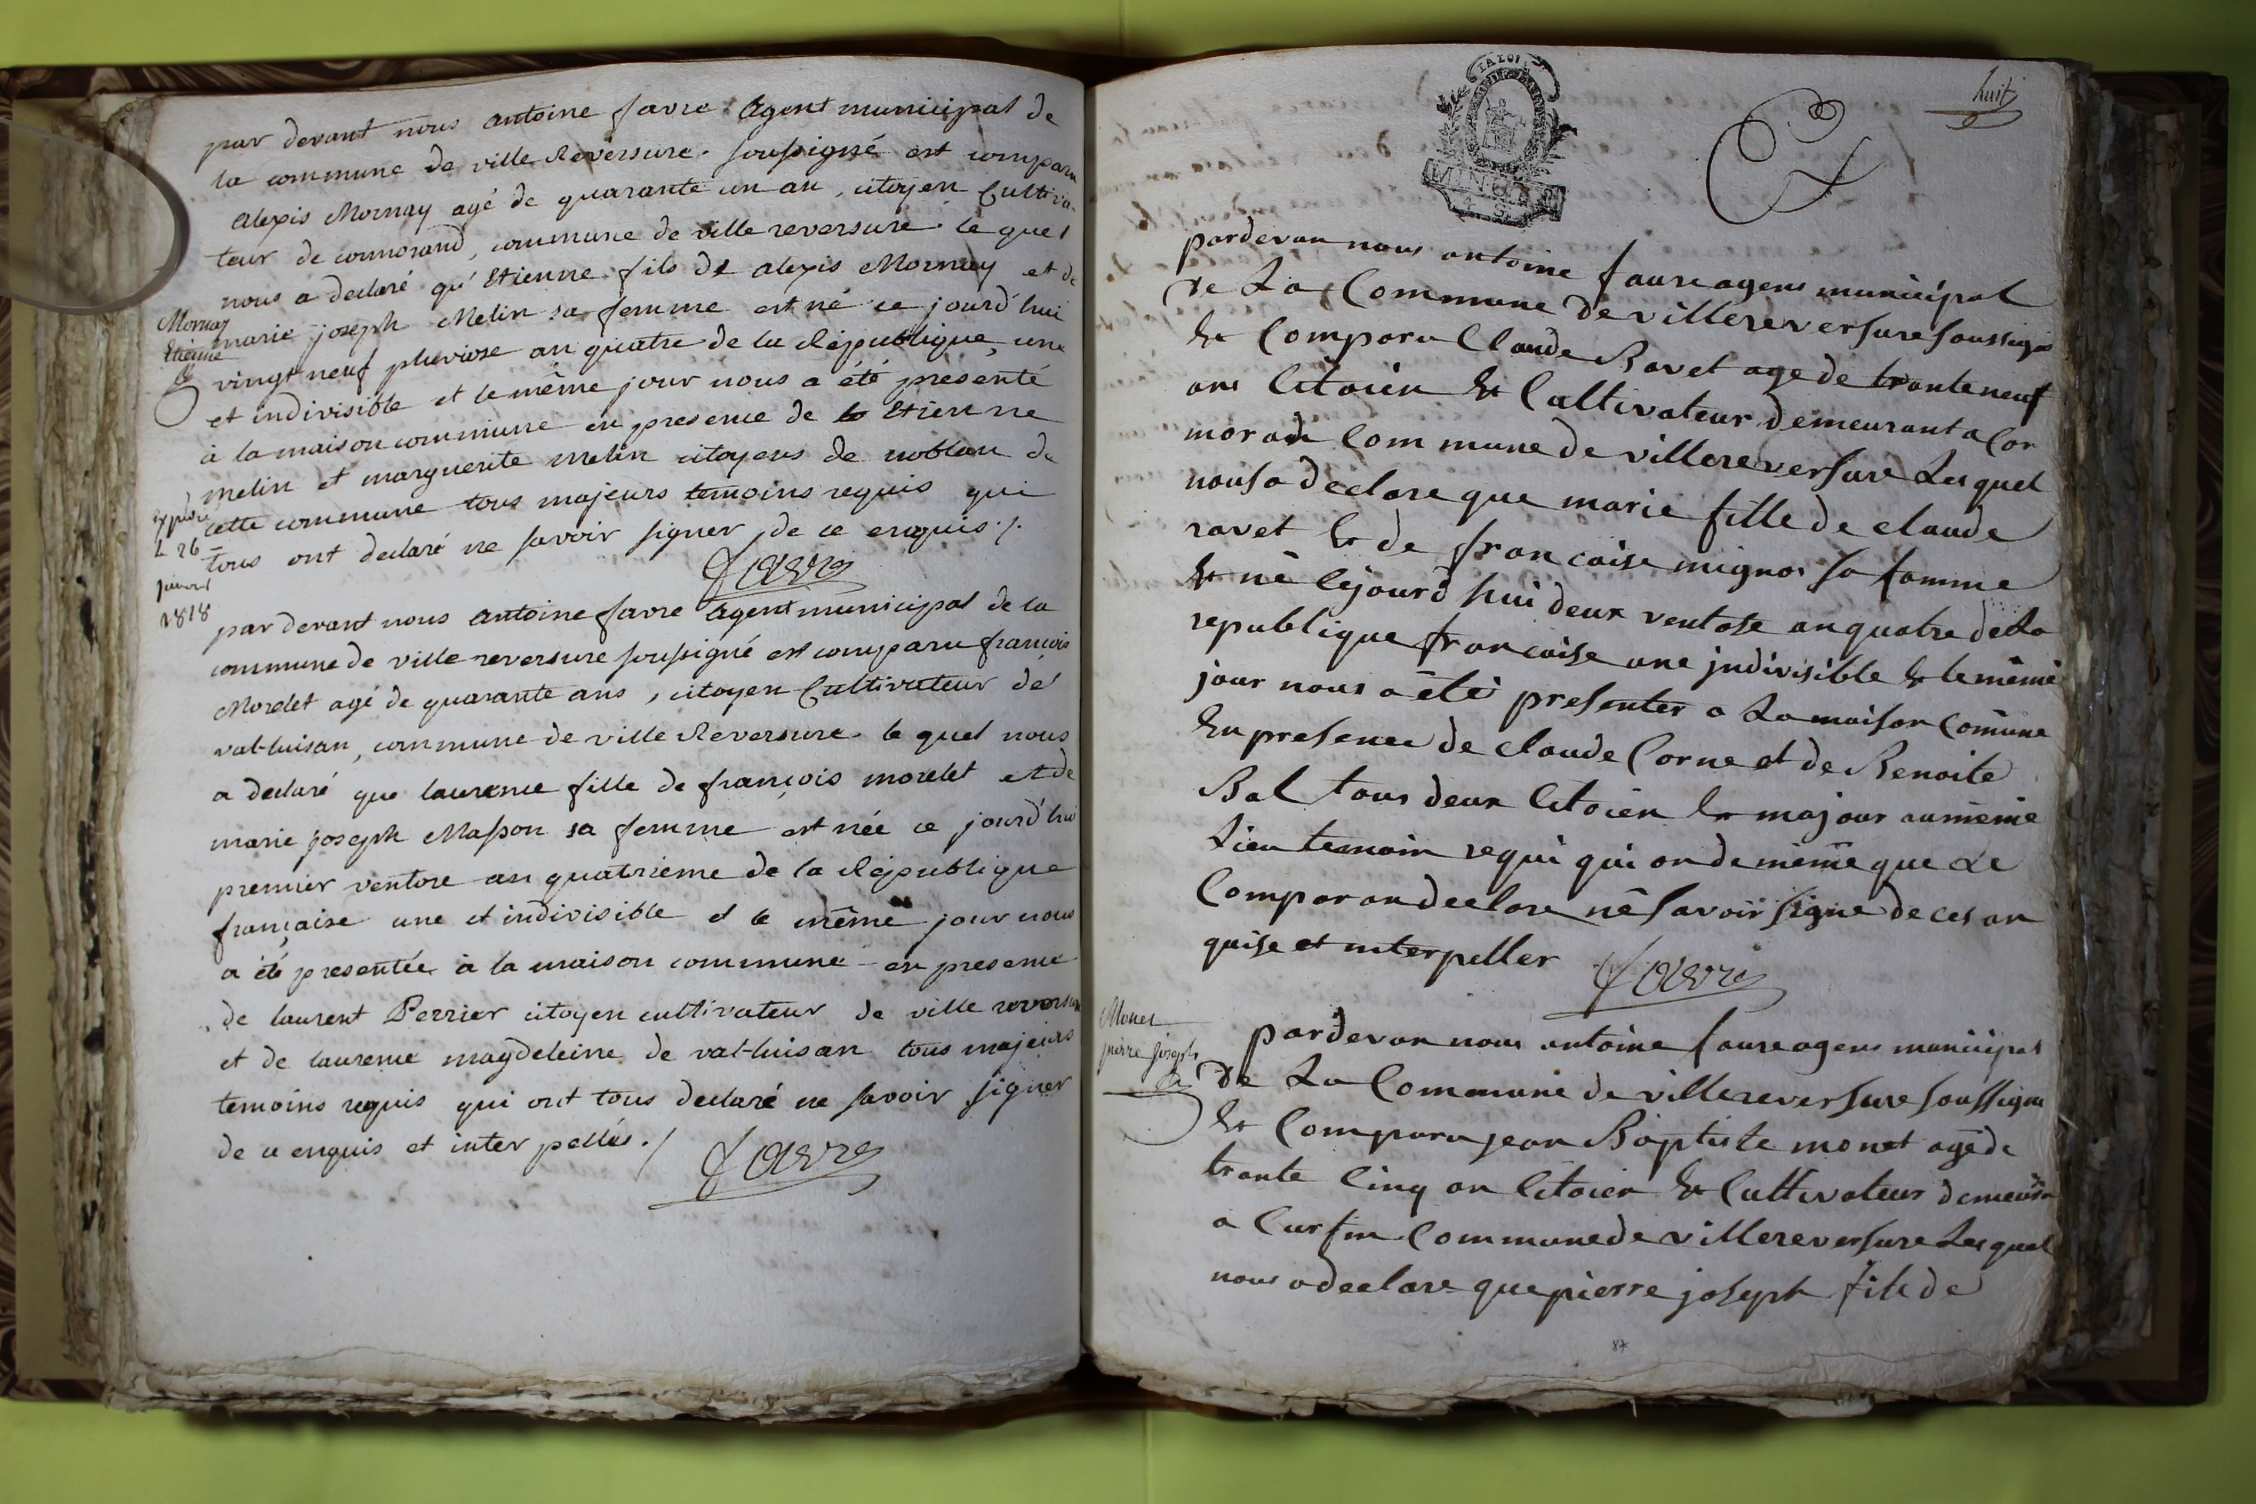 par devant nous antoine favre Agent municipal de
la commune de ville Reversure soussigné est comparu
alexis Mornay agé de quarante un an, citoyen Cultiva-
teur de cormorand, commune de ville reversure le quel
nous a declaré qu'Etienne fils de alexis Mornay et de
marie joseph Melin sa femme est né ce jourd'hui
vingt neuf pluviose an quatre de la République, une
et indivisible et le même jour nous a été presenté
à la maison commune en presence de Etienne
melin et marguerite melin citoyens de noblan de
cette commune tous majeurs temoins requis qui
tous ont declaré ne savoir signer, de ce enquis ./.
favre
Mornay
Etienne
expedié
L 26
janvier
1818
par devant nous antoine favre Agent municipal de la
commune de ville reversure soussigné est comparu françois
Morelet agé de quarante ans, citoyen Cultivateur de
val-luisan, commune de ville Reversure le quel nous
a declaré que laurence fille de françois morelet et de
marie joseph Masson sa femme est née ce jourd'hui
premier ventose an quatrieme de la République
française une et indivisible et le même jour nous
a été presentée à la maison commune en presence
de laurent Perrier citoyen cultivateur de ville reversure
et de laurence magdeleine de val-luisan tous majeurs
temoins requis qui ont tous declaré ne savoir signer
de ce enquis et inter pellés ./
favre
LA LOI
huit
pardevan nous antoine faure agens municipal
de La Commune de villereversure soussigné
Et Comparu Claude Ravet age de trante neuf
ans Citoien Et Cultivateur demeurant a Cor
moran Commune de villereversure Lequel
nousa declare que marie fille de claude
ravet Et de francoise mignot sa famme
Et nê Cejourd hui deux ventose an quatre de La
republique francaise une jndivisible Et le même
jour nous a ètè presenter a La maison Comune
En presence de claude Corne et de Benoite
Bal tous deux Citoien Et majour au même
Lieu temoin requi qui on de même que Le
Comparan declare nê savoir signe de ces an
quise et interpeller
favre
Monet
pierre joseph
pardevan nous antoine faure agens municipal
de La Commune de villereversure soussigne
Et Comparu jean Baptiste monet agé de
trante Cinq an Citoien Et Cultivateur demeuran
a Curfin Commune de villereversure Lequel
nous a declare que pierre joseph fils de
87